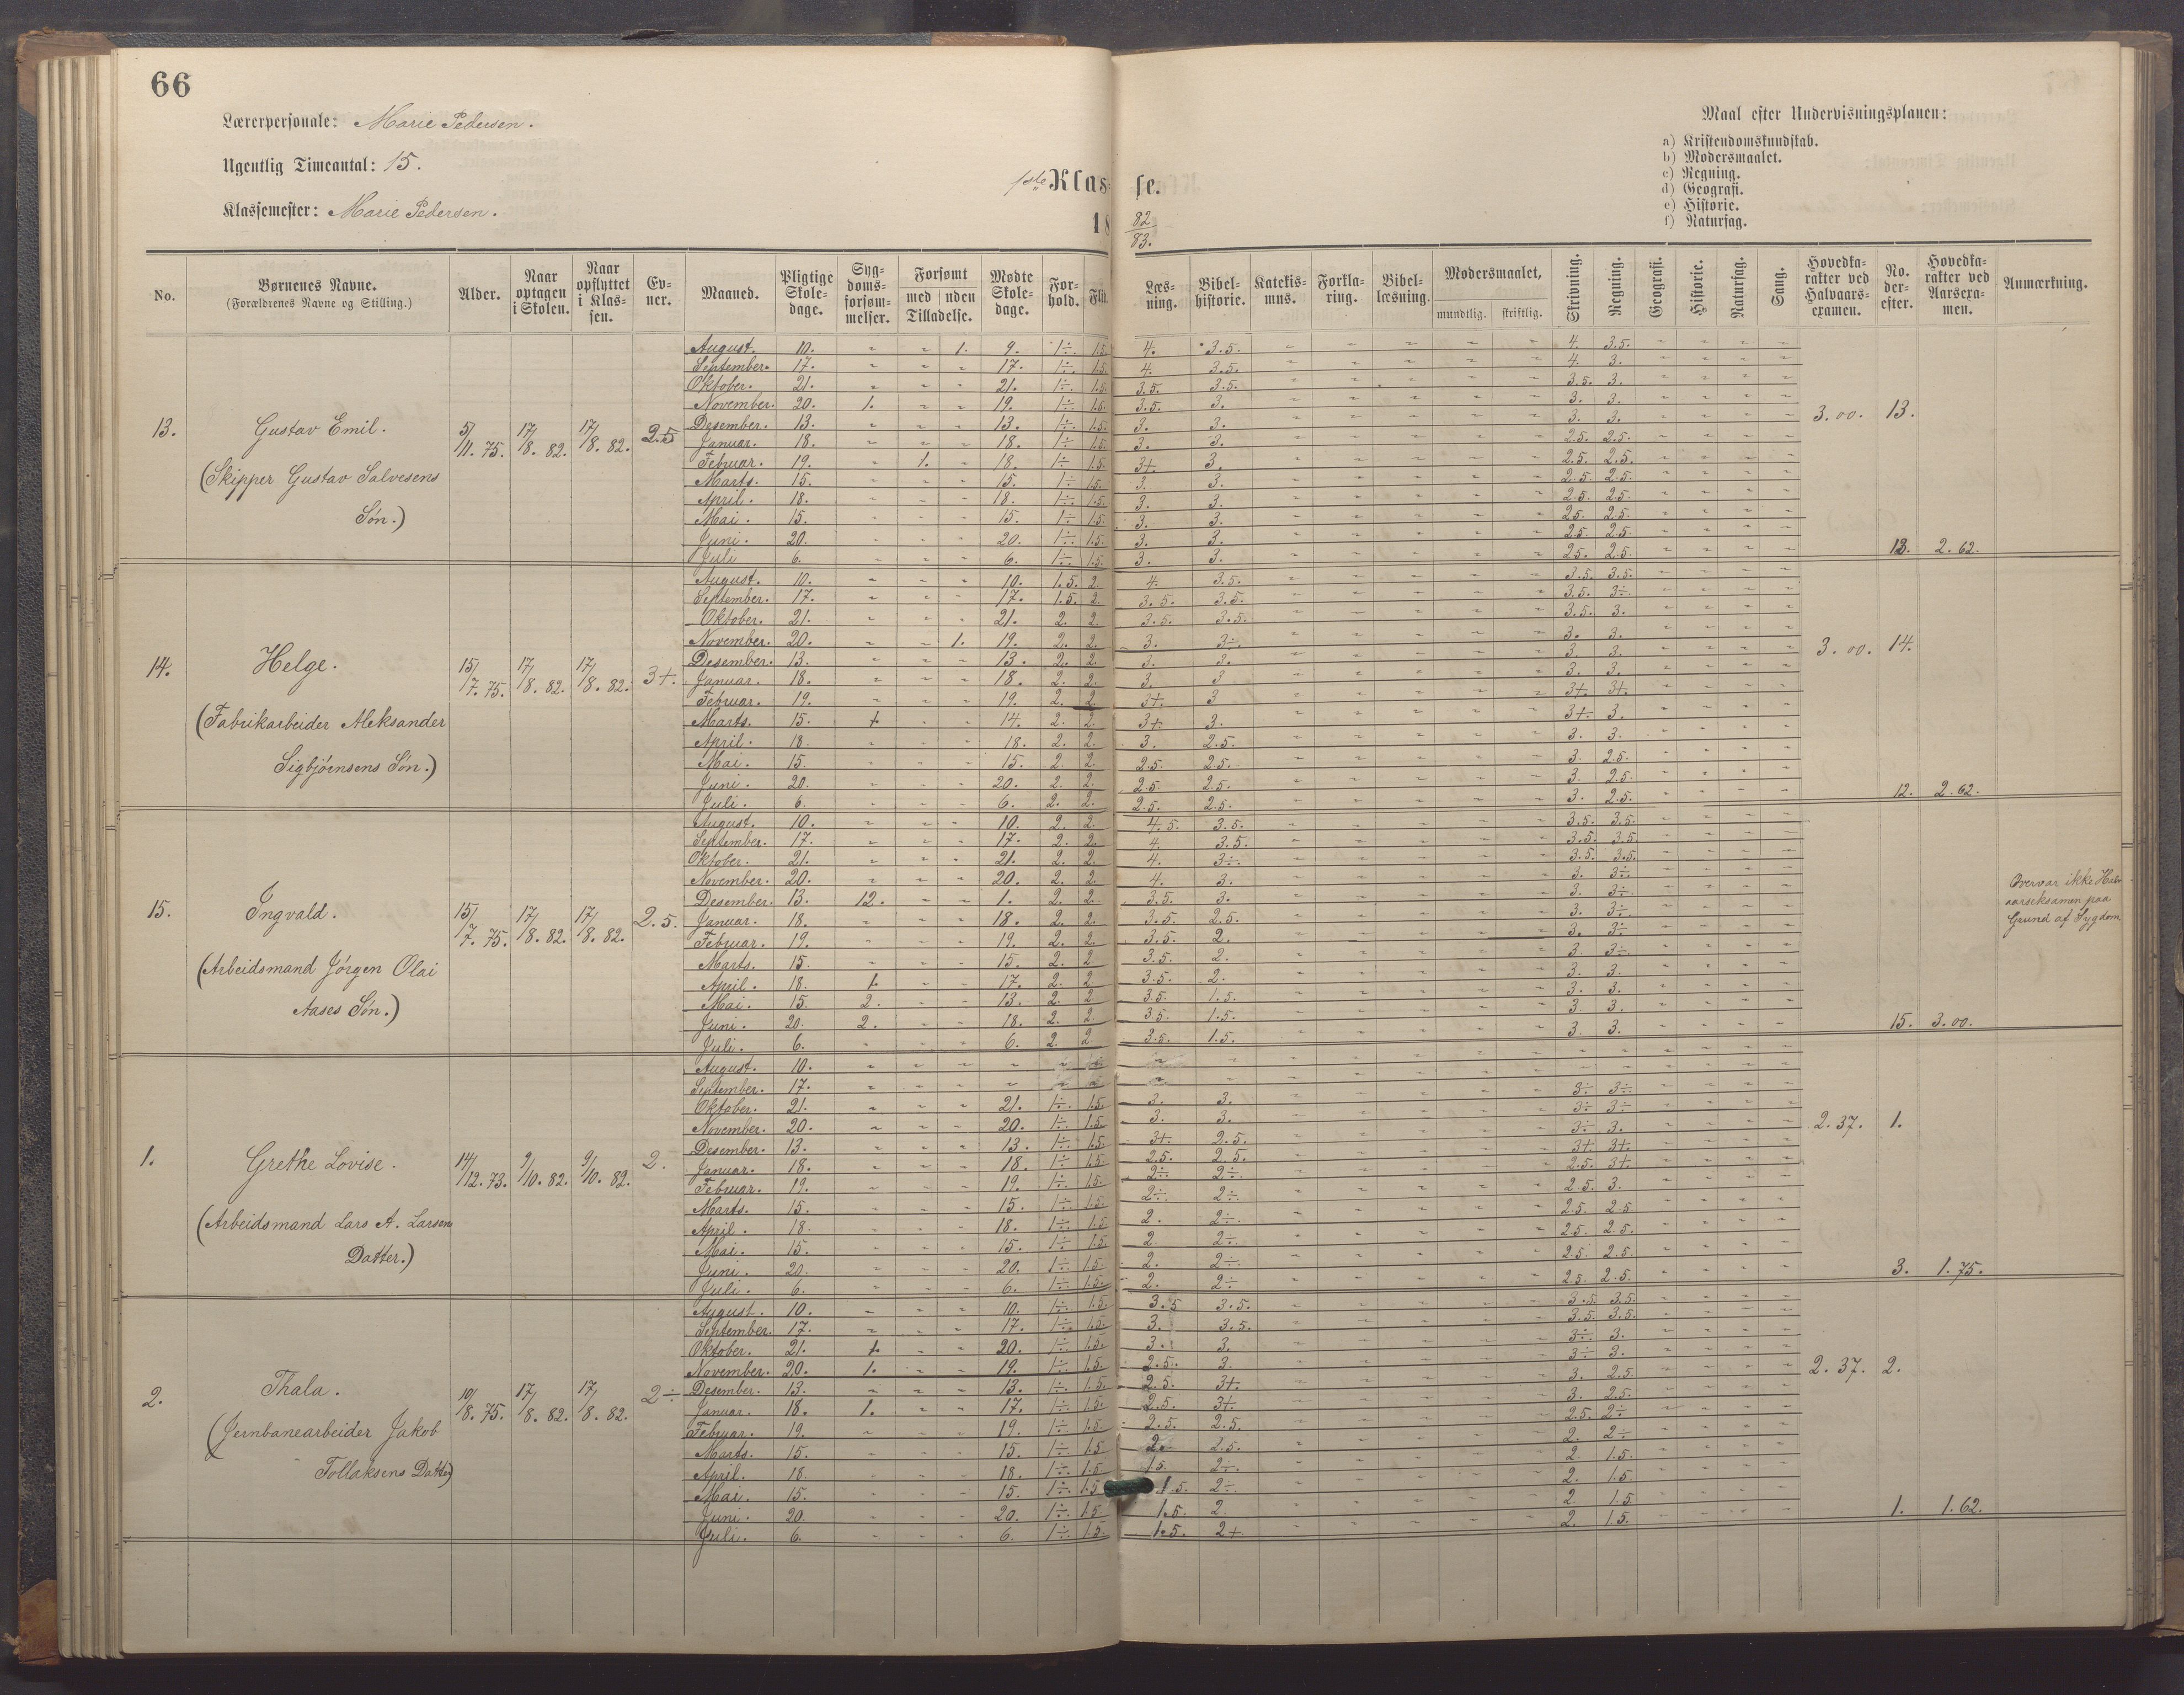 66
Lærerpersonale: Marie Pedersen.
Ugentlig Timeantal: 15.
Klassemester: Marie Pedersen.
1ste Klasse.
18 82/83.
Maal efter Undervisningsplanen:
a) Kristendomskundskab.
b) Modersmaalet.
c) Regning.
d) Geografi.
e) Historie.
f) Naturfag.
No. Børnenes Navne. (Forældrenes Navne og Stilling.) Alder. Naar optagen i Skolen. Naar opflyttet i Klassen. Evner. Maaned. Pligtige Skoledage. Sygdomsforsømmelser. Forsømt med uden Tilladelse. Mødte Skoledage. Forhold. Flid. Læsning. Bibelhistorie. Katekismus. Forklaring. Bibellæsning. Modersmaalet, mundtlig. skriftlig. Skrivning. Regning. Geografi. Historie. Naturfag. Sang. Hovedkarakter ved Halvaarsexamen. No. derefter. Hovedkarakter ved Aarsexamen. Anmærkning.
13. Gustav Emil. (Skipper Gustav Salvesens Søn.) 5/11. 75. 17/8. 82. 17/8. 82. 2.5 3.00. 13.
August. 10. - - 1. 9. 1÷. 1.5. 4. 3.5. - - - - - 4. 3.5. - - - -
September. 17. - - - 17. 1÷. 1.5. 4. 3.5. - - - - - 4. 3. - - - -
Oktober. 21. - - - 21. 1÷. 1.5. 3.5. 3.5. - - - - - 3.5. 3. - - - -
November. 20. 1. - - 19. 1÷. 1.5. 3.5. 3. - - - - - 3. 3. - - - -
Desember. 13. - - - 13. 1÷. 1.5. 3. 3. - - - - - 3. 3. - - - -
Januar. 18. - - - 18. 1÷. 1.5. 3. 3. - - - - - 2.5. 2.5. - - - -
Februar. 19. - 1. - 18. 1÷. 1.5. 3+. 3. - - - - - 2.5. 2.5. - - - -
Marts. 15. - - - 15. 1÷. 1.5. 3. 3. - - - - - 2.5. 2.5. - - - -
April. 18. - - - 18. 1÷. 1.5. 3. 3. - - - - - 2.5. 2.5. - - - -
Mai. 15. - - - 15. 1÷. 1.5. 3. 3. - - - - - 2.5. 2.5. - - - -
Juni. 20. - - - 20. 1÷. 1.5. 3. 3. - - - - - 2.5. 2.5. - - - -
Juli 6. - - - 6. 1÷. 1.5. 3. 3. - - - - - 2.5. 2.5. - - - - 13. 2.62.
14. Helge. (Fabrikarbeider Aleksander Sigbjørnsens Søn.) 15/7. 75. 17/8. 82. 17/8. 82. 3+. 3.00. 14.
August. 10. - - - 10. 1.5. 2. 4. 3.5. - - - - - 3.5. 3.5. - - - -
September. 17. - - - 17. 1.5. 2. 3.5. 3.5. - - - - - 3.5. 3÷. - - - -
Oktober. 21. - - - 21. 2. 2. 3.5. 3.5. - - - - - 3.5. 3. - - - -
November. 20. - - 1. 19. 2. 2. 3. 3÷. - - - - - 3. 3. - - - -
Desember. 13. - - - 13. 2. 2. 3. 3. - - - - - 3. 3. - - - -
Januar. 18. - - - 18. 2. 2. 3. 3 - - - - - 3. 3. - - - -
Februar. 19. - - - 19. 2. 2 3+. 3 - - - - - 3+. 3+. - - - -
Marts. 15. 1. - - 14. 2. 2. 3+. 3. - - - - - 3+. 3. - - - -
April. 18. - - - 18. 2. 2. 3. 2.5. - - - - - 3. 3. - - - -
Mai. 15. - - - 15. 2. 2. 2.5. 2.5. - - - - - 3. 2.5. - - - -
Juni. 20. - - - 20. 2. 2. 2.5. 2.5. - - - - - 3. 2.5. - - - -
Juli. 6. - - - 6. 2. 2. 2.5. 2.5. - - - - - 3. 2.5. - - - - 12. 2.62.
15. Ingvald. (Arbeidsmand Jørgen Olai Aases Søn.) 15/7. 75. 17/8. 82. 17/8. 82. 2.5. Overvar ikke Halvaarseksamen paa Grund af Sygdom
August. 10. - - - 10. 2. 2. 4.5. 3.5. - - - - - 3.5. 3.5. - - - -
September. 17. - - - 17. 2. 2. 4. 3.5. - - - - - 3.5. 3.5. - - - -
Oktober. 21. - - - 21. 2. 2. 4. 3÷. - - - - - 3.5. 3.5. - - - -
November. 20. - - - 20. 2. 2. 4. 3. - - - - - 3. 3÷. - - - -
Desember. 13. 12. - - 1. 2. 2. 3.5. 3. - - - - - 3. 3÷. - - - -
Januar. 18. - - - 18. 2. 2. 3.5. 2.5. - - - - - 3. 3÷. - - - -
Februar. 19. - - - 19. 2. 2. 3.5. 2. - - - - - 3. 3÷. - - - -
Marts. 15. - - - 15. 2. 2. 3.5. 2. - - - - - 3. 3÷. - - - -
April. 18. 1. - - 17. 2. 2. 3.5. 2. - - - - - 3. 3. - - - -
Mai. 15. 2. - - 13. 2. 2. 3.5. 1.5. - - - - - 3. 3. - - - -
Juni. 20. 2. - - 18. 2. 2. 3.5. 1.5. - - - - - 3 3. - - - -
Juli. 6. - - - 6. 2. 2 3.5. 1.5. - - - - - 3. 3. - - - - 15. 3.00.
1. Grethe Lovise. (Arbeidsmand Lars A. Larsens Datter.) 14/12. 73. 9/10. 82. 9/10. 82. 2. 2.37. 1.
August. 10. - - - - - - - - - - - - - - - - - - -
September. 17. - - - - - - - - - - - - - - - - - - -
Oktober. 21. - - - 21. 1÷. 1.5. 3. 3. - - - - - 3÷ 3÷. - - - -
November. 20. - - - 20. 1÷. 1.5. 3. 3. - - - - - 3÷ 3÷ - - - -
Desember. 13. - - - 13. 1÷. 1.5. 3+. 2.5. - - - - - 3÷ 3. - - - -
Januar. 18. - - - 18. 1÷. 1.5. 2.5. 2.5. - - - - - 3+ 3+. - - - -
Februar. 19. - - - 19. 1÷. 1.5. 2÷. 2÷. - - - - - 2.5. 3+. - - - -
Marts. 15. - - - 15. 1÷. 1.5. 2÷. 2÷. - - - - - 2.5. 3. - - - -
April. 18. - - - 18. 1÷. 1.5. 2. 2÷. - - - - - 2.5. 2.5. - - - -
Mai. 15. - - - 15. 1÷. 1.5. 2. 2÷. - - - - - 2.5. 2.5. - - - -
Juni. 20. - - - 20. 1÷. 1.5. 2. 2÷. - - - - - 2.5. 2.5. - - - -
Juli. 6. - - - 6. 1÷. 1.5. 2. 2÷ - - - - - 2.5. 2.5. - - - - 3. 1.75.
2. Thala. (Jernbanearbeider Jakob Tollaksens Datter) 10/8. 75. 17/8. 82. 17/8. 82. 2÷ 2.37. 2.
August. 10. - - - 10. 1÷. 1.5. 3.5 3.5. - - - - - 3.5. 3.5. - - - -
September. 17. - - - 17. 1÷. 1.5. 3. 3.5. - - - - - 3.5. 3.5. - - - -
Oktober. 21. 1. - - 20. 1÷. 1.5. 3. 3. - - - - - 3÷. 3. - - - -
November. 20. 1. - - 19. 1÷. 1.5. 2.5. 3. - - - - - 3÷ 3. - - - -
Desember. 13. - - - 13. 1÷. 1.5. 2.5. 3+. - - - - - 3. 2.5. - - - -
Januar. 18. 1. - - 17. 1÷. 1.5. 2.5. 3+. - - - - - 3. 2.5. - - - -
Februar. 19. - - - 19. 1÷. 1.5 2.5. 2.5. - - - - - 2.5. 2÷ - - - -
Marts. 15. - - - 15. 1÷. 1.5 2. 2.5. - - - - - 2. 2÷ - - - -
April. 18. - - - 18. 1÷. 1.5 1.5. 2÷. - - - - - 2 1.5. - - - -
Mai. 15. - - - 15. 1÷. 1.5 1.5. 2÷. - - - - - 2. 1.5. - - - -
Juni. 20. - - - 20. 1÷. 1.5. 1.5. 2. - - - - - 2. 1.5. - - - -
Juli. 6. - - - 6. 1÷. 1.5. 1.5. 2+. - - - - - 2. 1.5. - - - - 1. 1.62.